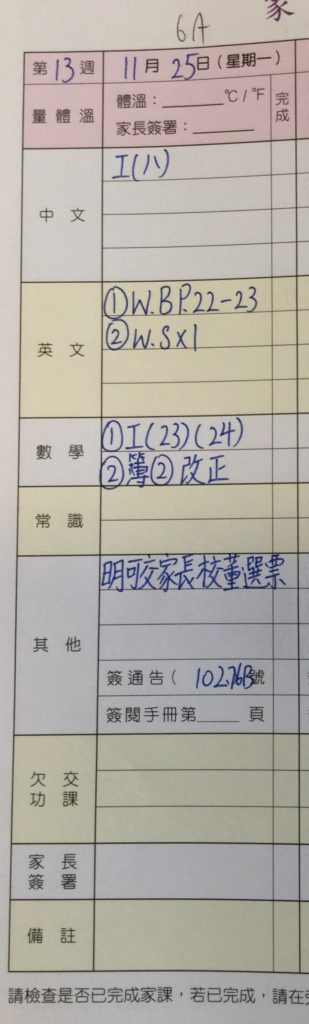 家
6A
第13週 11月25日(星期一)
量體溫
體溫：______°C/°F
家長簽署：______
完成
中文
I(八)
英文
①W.B P.22-23
②W.S x1
數學
①I(23)(24)
②簿②改正
常識
其他
明可交家長校董選票
簽通告( 102,76B號
簽閱手冊第____頁
欠交功課
家長簽署
備註
請檢查是否已完成家課，若已完成，請在